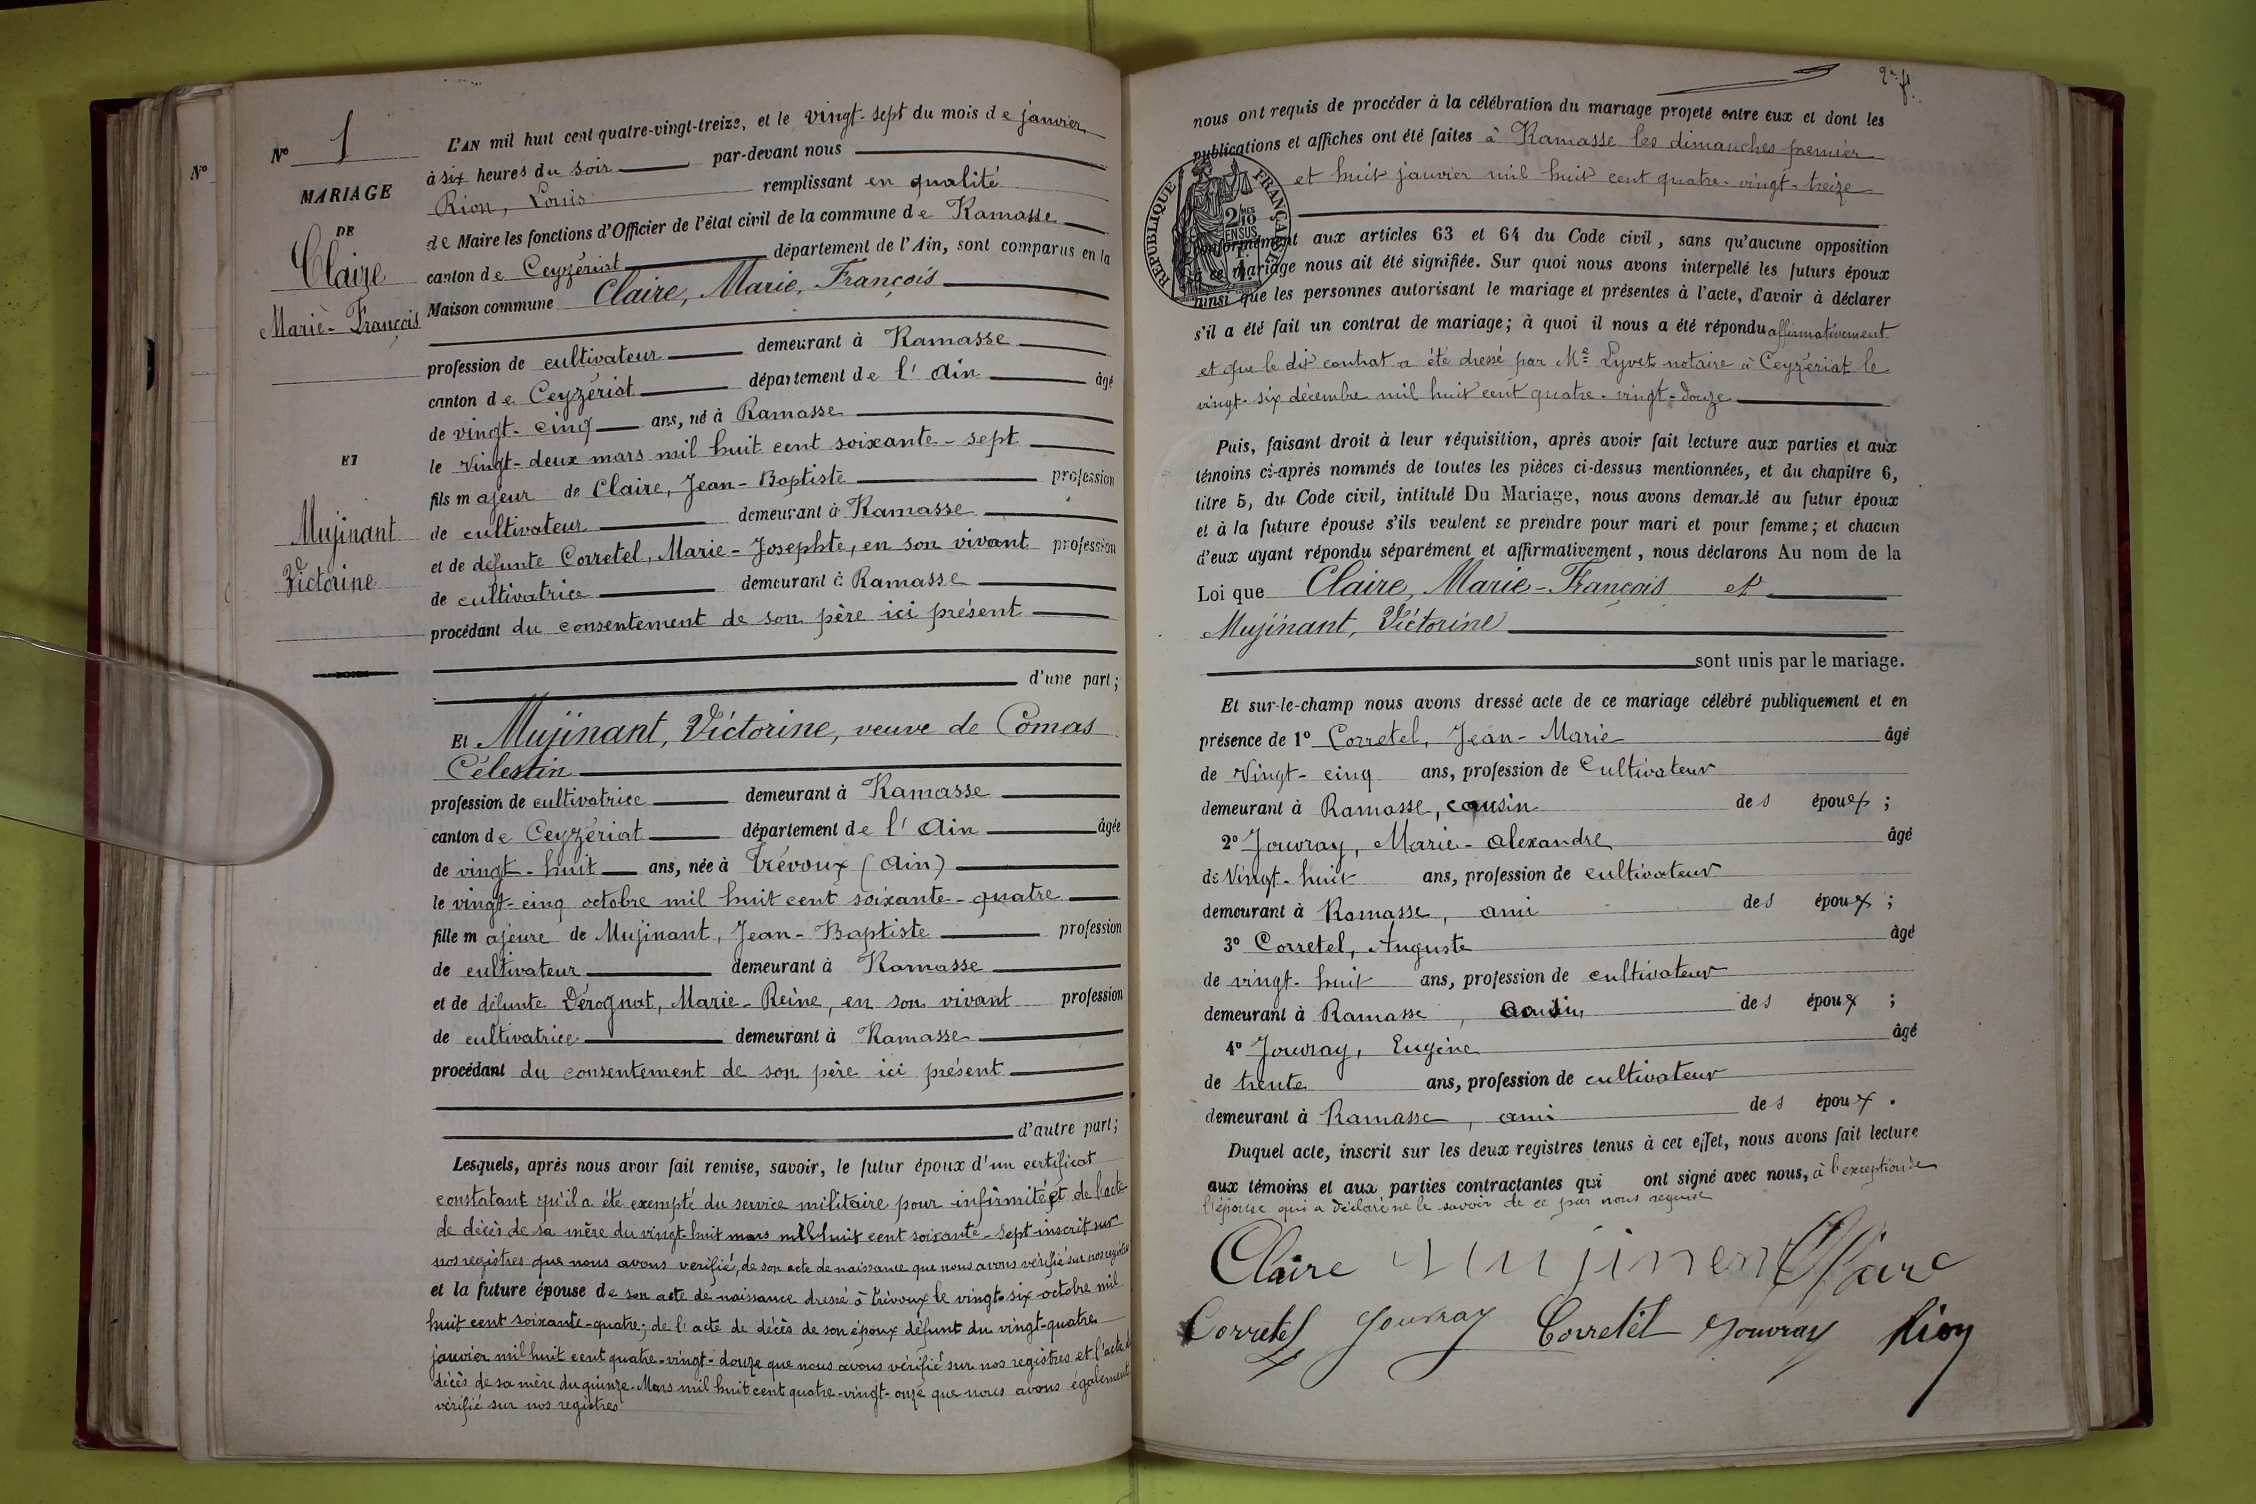 N°
N° 1
MARIAGE
DE
Claire
Marie-François
ET
Mujinant
Victorine
L'AN mil huit cent quatre-vingt-treize, et le vingt-sept du mois de janvier
à six heures du soir par-devant nous
Rion, Louis remplissant en qualité
de Maire les fonctions d'Officier de l'état civil de la commune de Ramasse
canton de Ceyzériat département de l'Ain, sont comparus en la
Maison commune Claire, Marie, François
profession de cultivateur demeurant à Ramasse
canton de Ceyzériat département de l'Ain âgé
de vingt-cinq ans, né à Ramasse
le vingt-deux mars mil huit cent soixante-sept
fils majeur de Claire, Jean-Baptiste profession
de cultivateur demeurant à Ramasse
et de défunte Corretel, Marie-Josephte, en son vivant profession
de cultivatrice demeurant à Ramasse
procédant du consentement de son père ici présent
d'une part;
Et Mujinant, Victorine, veuve de Comas
Célestin
profession de cultivatrice demeurant à Ramasse
canton de Ceyzériat département de l'Ain âgée
de vingt-huit ans, née à Trévoux (Ain)
le vingt-cinq octobre mil huit cent soixante-quatre
fille majeure de Mujinant, Jean-Baptiste profession
de cultivateur demeurant à Ramasse
et de défunte Dérognat, Marie-Reine, en son vivant profession
de cultivatrice demeurant à Ramasse
procédant du consentement de son père ici présent
d'autre part;
Lesquels, après nous avoir fait remise, savoir, le futur époux d'un certificat
constatant qu'il a été exempté du service militaire pour infirmité, et de l'acte
de décès de sa mère du vingt-huit mars mil huit cent soixante-sept inscrit sur
nos registres que nous avons vérifié, de son acte de naissance que nous avons vérifié sur nos registres
et la future épouse de son acte de naissance dressé à Trévoux le vingt-six octobre mil
huit cent soixante-quatre; de l'acte de décès de son époux défunt du vingt-quatre
janvier mil huit cent quatre-vingt-douze que nous avons vérifié sur nos registres et l'acte de
décès de sa mère du quinze Mars mil huit cent quatre-vingt-onze que nous avons également
vérifié sur nos registres
nous ont requis de procéder à la célébration du mariage projeté entre eux et dont les
publications et affiches ont été faites à Ramasse les dimanches premier
et huit janvier mil huit cent quatre-vingt-treize
RÉPUBLIQUE FRANÇAISE
2/10 MES
EN SUS
conformément aux articles 63 et 64 du Code civil, sans qu'aucune opposition
à ce mariage nous ait été signifiée. Sur quoi nous avons interpellé les futurs époux
ainsi que les personnes autorisant le mariage et présentes à l'acte, d'avoir à déclarer
s'il a été fait un contrat de mariage; à quoi il nous a été répondu affirmativement
et que le dit contrat a été dressé par Me Lyvet notaire à Ceyzériat le
vingt-six décembre mil huit cent quatre-vingt-douze
Puis, faisant droit à leur réquisition, après avoir fait lecture aux parties et aux
témoins ci-après nommés de toutes les pièces ci-dessus mentionnées, et du chapitre 6,
titre 5, du Code civil, intitulé Du Mariage, nous avons demandé au futur époux
et à la future épouse s'ils veulent se prendre pour mari et pour femme; et chacun
d'eux ayant répondu séparément et affirmativement, nous déclarons Au nom de la
Loi que Claire, Marie-François et
Mujinant, Victorine
sont unis par le mariage.
Et sur-le-champ nous avons dressé acte de ce mariage célébré publiquement et en
présence de 1° Corretel, Jean-Marie âgé
de Vingt-cinq ans, profession de Cultivateur
demeurant à Ramasse, cousin des époux;
2° Jouvray, Marie-Alexandre âgé
de Vingt-huit ans, profession de cultivateur
demeurant à Ramasse, ami des époux;
3° Corretel, Auguste âgé
de vingt-huit ans, profession de cultivateur
demeurant à Ramasse, cousin des époux;
4° Jouvray, Eugène âgé
de trente ans, profession de cultivateur
demeurant à Ramasse, ami des époux.
Duquel acte, inscrit sur les deux registres tenus à cet effet, nous avons fait lecture
aux témoins et aux parties contractantes qui ont signé avec nous, à l'exception de
l'épouse qui a déclaré ne le savoir de ce par nous requise
Claire Mujinent Claire
Corretel Jouvray Corretel Jouvray Rion